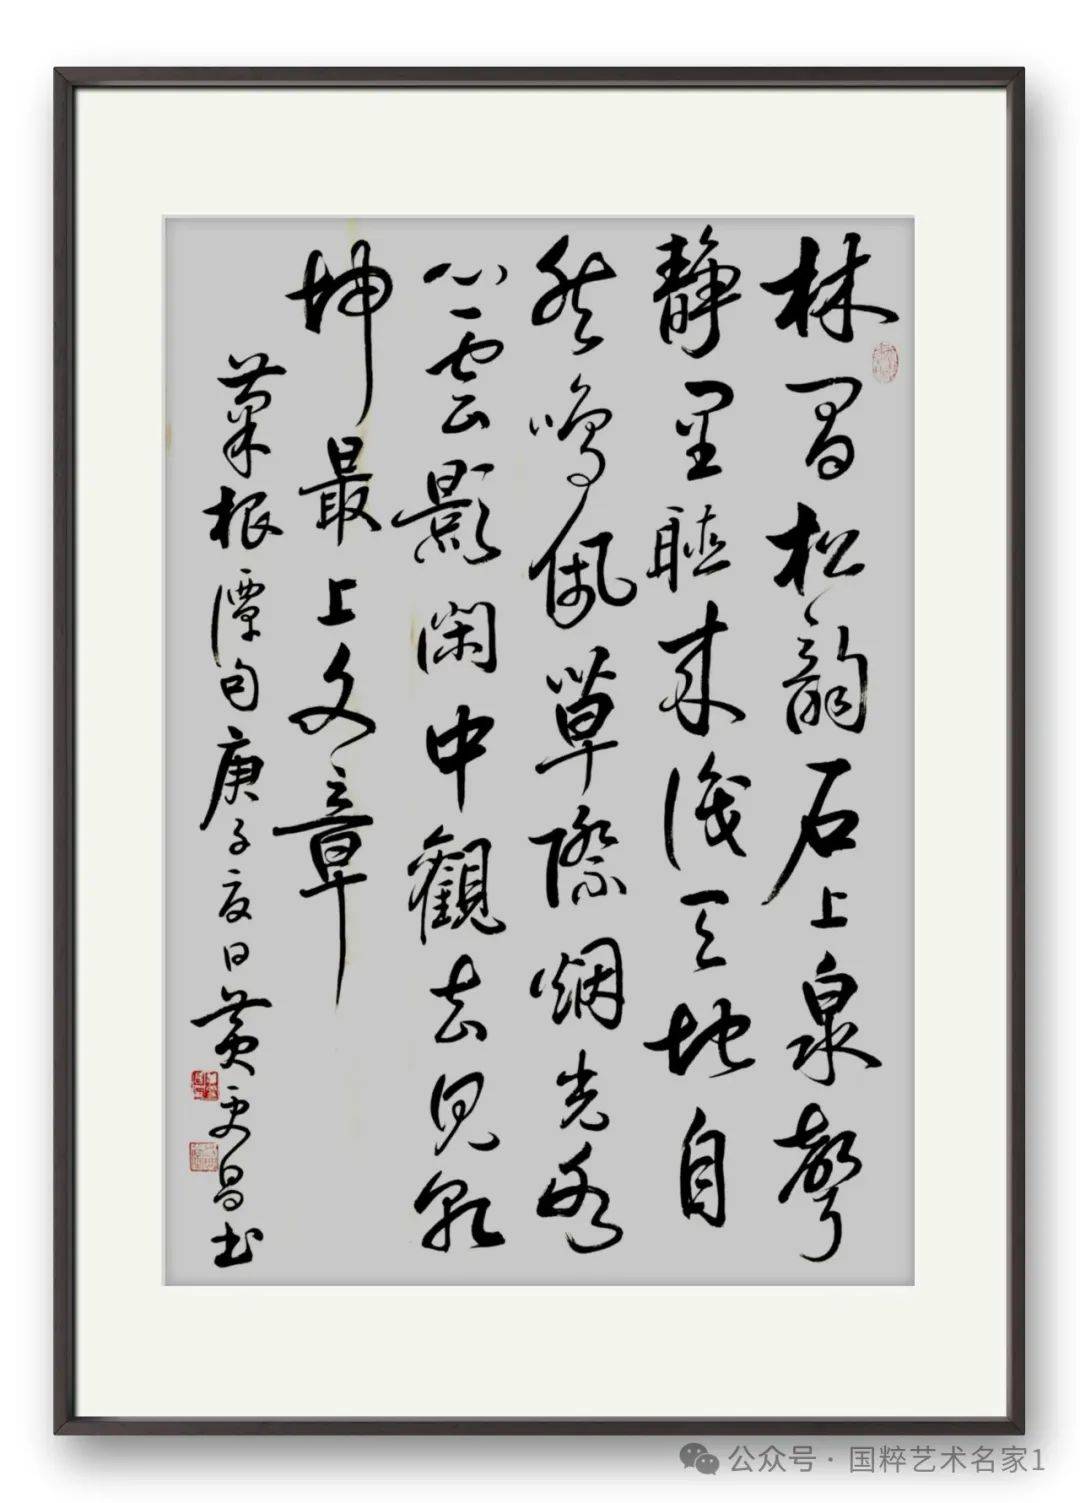 林間松韻石上泉聲
靜里聽来識天地自
然鳴佩草際烟光水
心雲影閑中觀去見乾
坤最上文章
菜根潭句庚子夏日黄更昌书
公众号 · 国粹艺术名家1